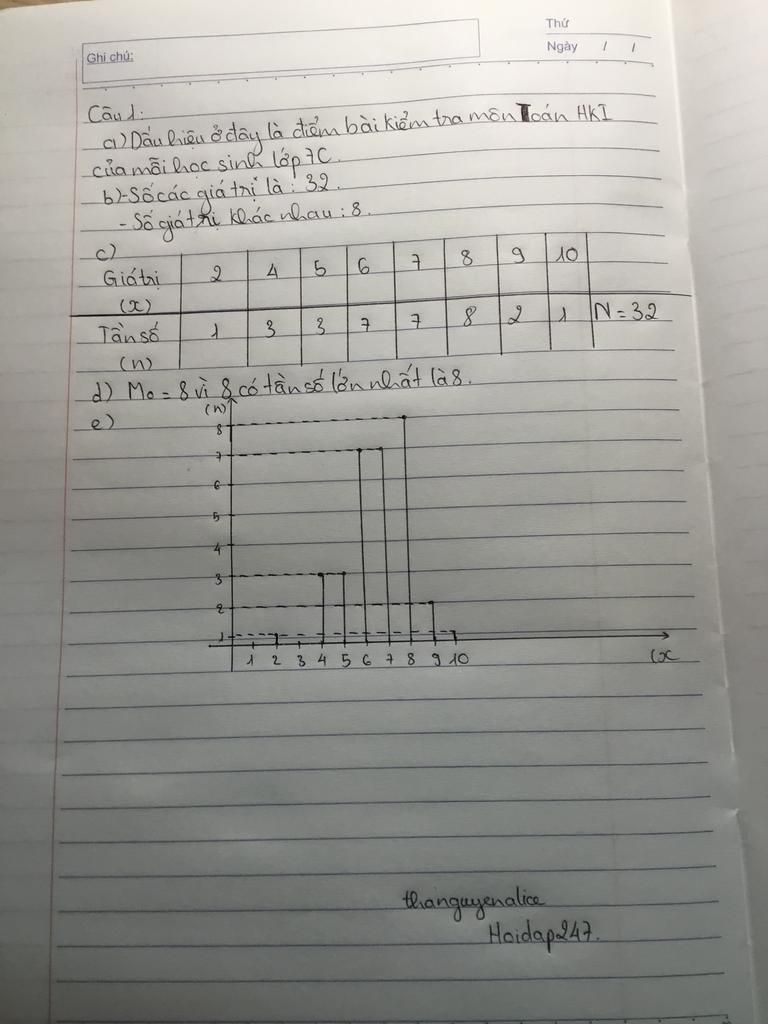 Thứ
Ngày / /
Ghi chú:
Câu 1:
a) Dấu hiệu ở đây là điểm bài kiểm tra môn Toán HKI
của mỗi học sinh lớp 7C.
b) - Số các giá trị là : 32.
- Số giá trị khác nhau : 8.
c)
Giá trị (x) 2 4 5 6 7 8 9 10
Tần số (n) 1 3 3 7 7 8 2 1 N = 32
d) Mo = 8 vì 8 có tần số lớn nhất là 8.
e)
(n)
8
7
6
5
4
3
2
1
1 2 3 4 5 6 7 8 9 10 (x
thanguyenalice
Hoidap247.